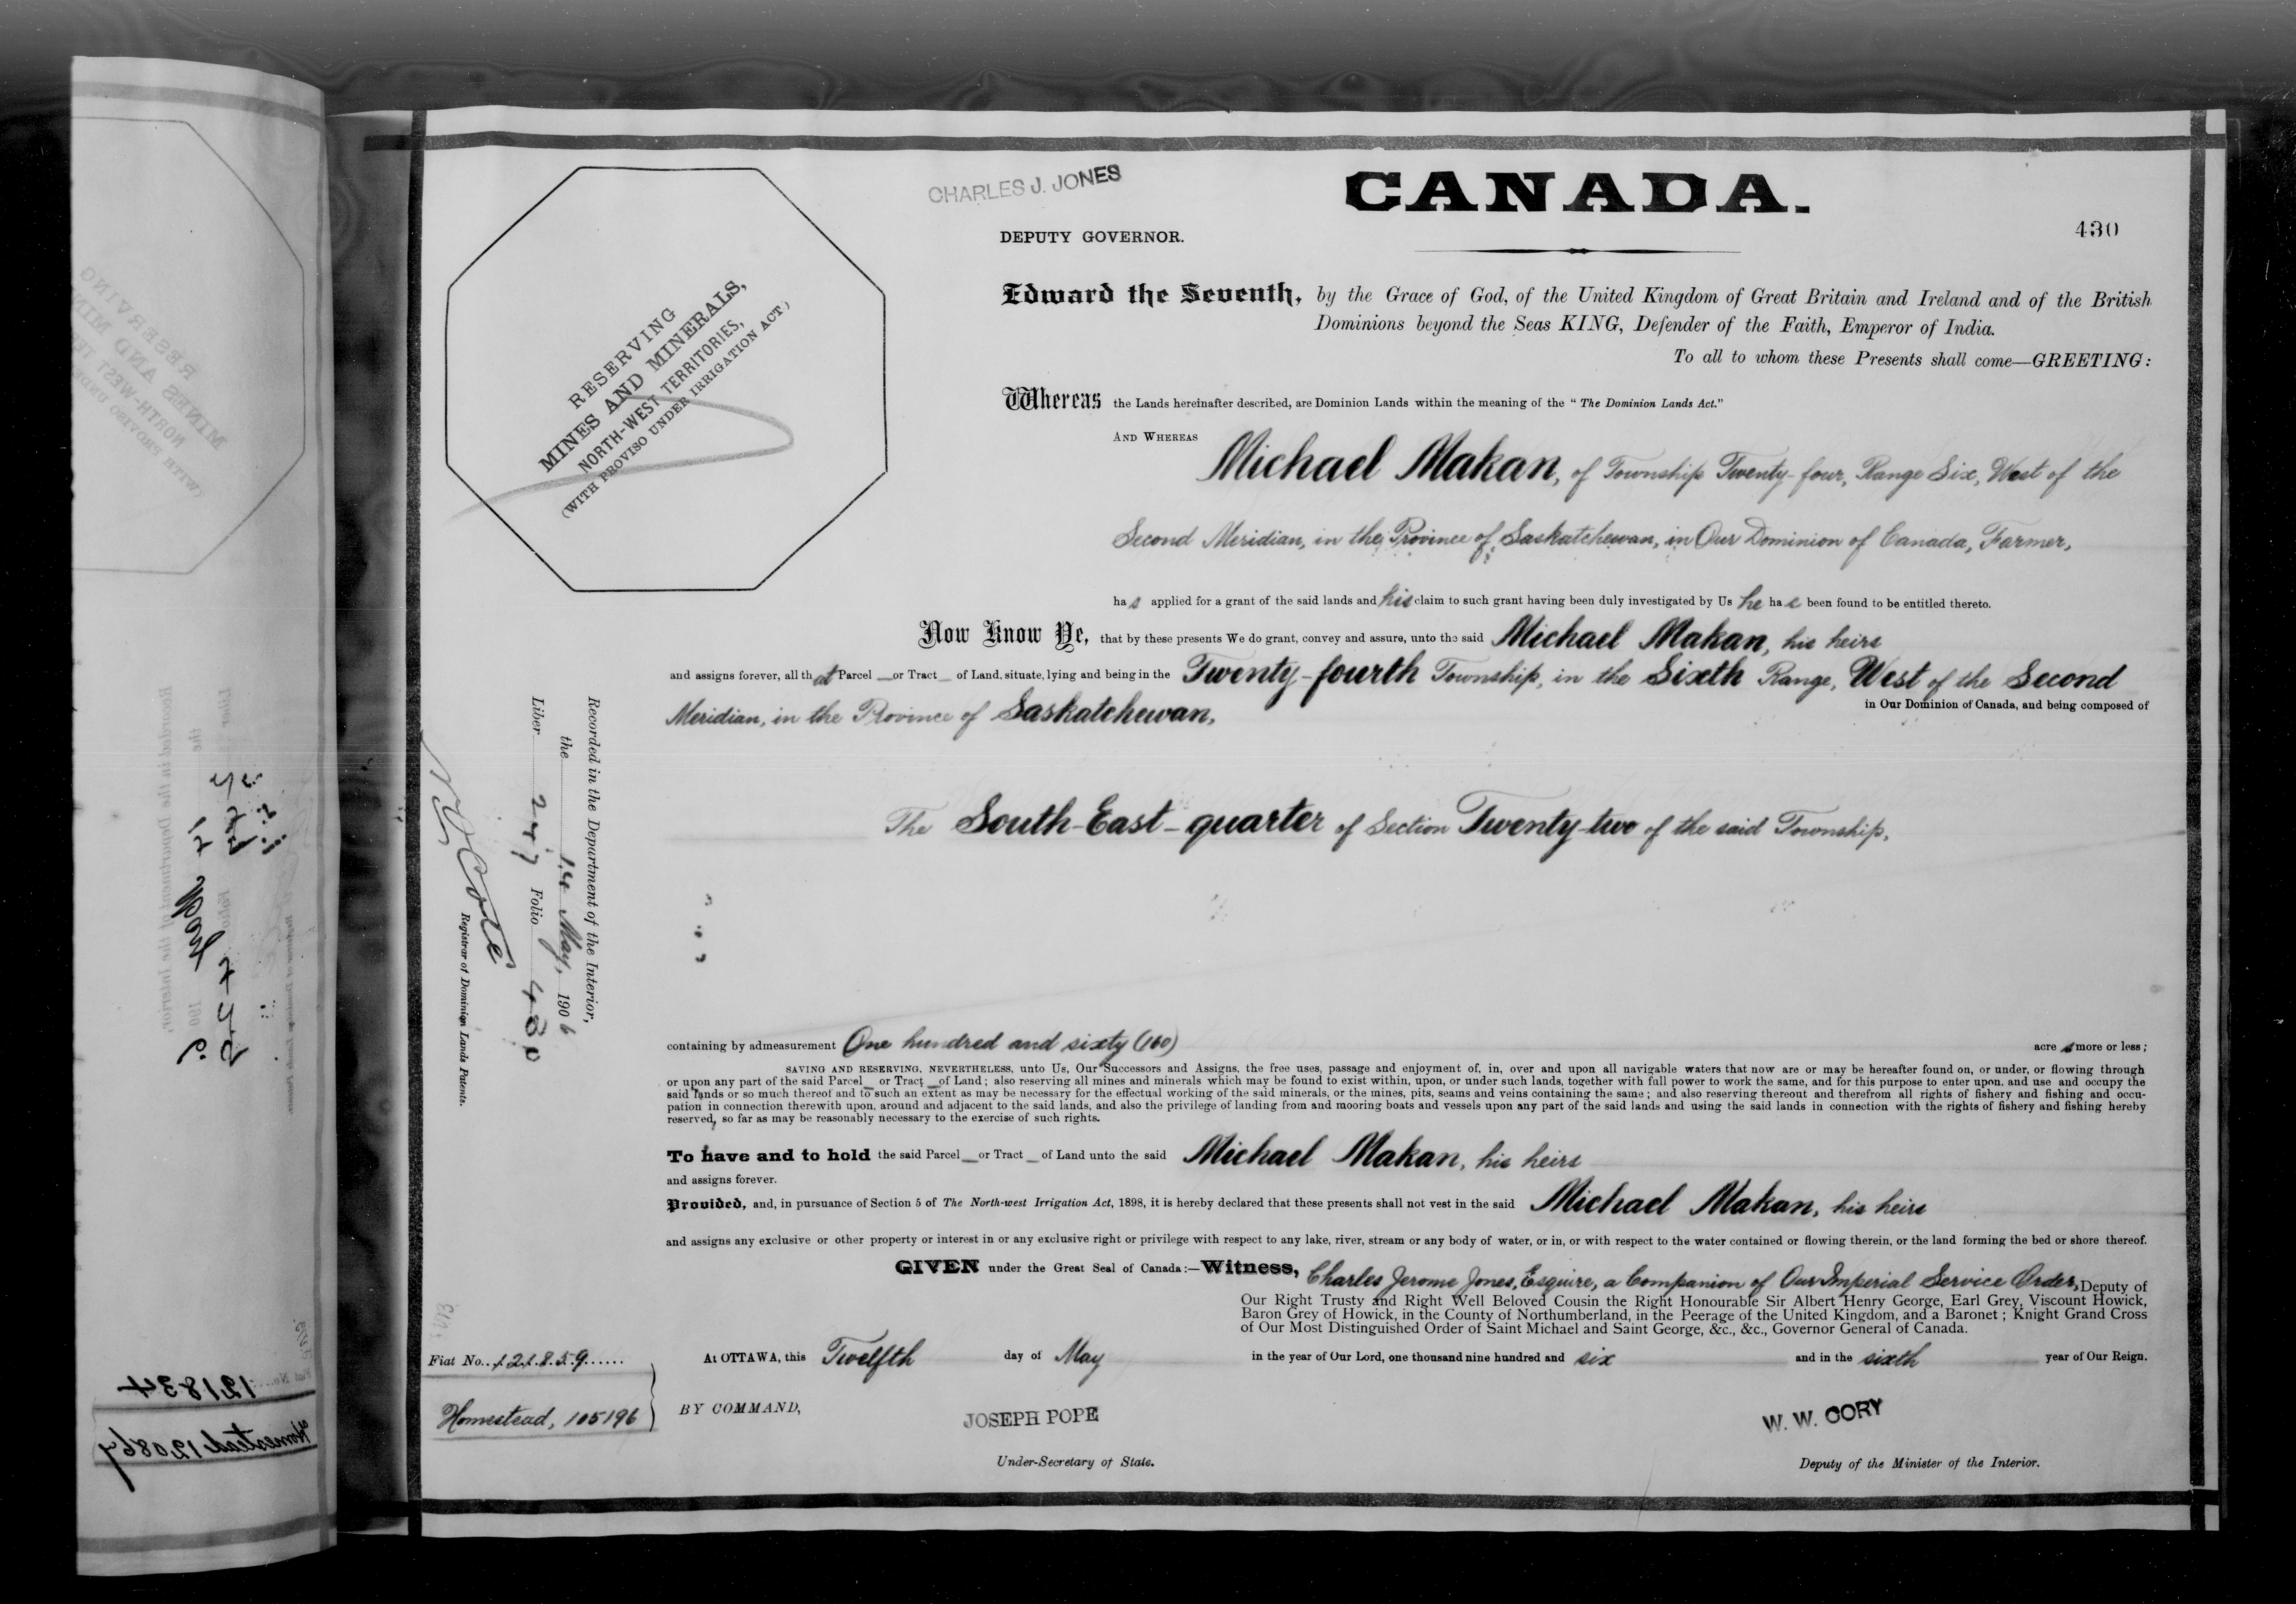 CHARLES J. JONES
CANADA.
DEPUTY GOVERNOR.
430
RESERVING
MINES AND MINERALS,
NORTH-WEST TERRITORIES,
(WITH PROVISO UNDER IRRIGATION ACT)
Edward the Seventh, by the Grace of God, of the United Kingdom of Great Britain and Ireland and of the British
Dominions beyond the Seas KING, Defender of the Faith, Emperor of India.
To all to whom these Presents shall come—GREETING:
Whereas the Lands hereinafter described, are Dominion Lands within the meaning of the "The Dominion Lands Act."
AND WHEREAS
Michael Makan, of Township Twenty-four, Range Six, West of the
Second Meridian, in the Province of Saskatchewan, in Our Dominion of Canada, Farmer,
has applied for a grant of the said lands and his claim to such grant having been duly investigated by Us he has been found to be entitled thereto.
Now Know Ye, that by these presents We do grant, convey and assure, unto the said Michael Makan, his heirs
and assigns forever, all that Parcel or Tract of Land, situate, lying and being in the Twenty-fourth Township, in the Sixth Range, West of the Second
Meridian, in the Province of Saskatchewan,
in Our Dominion of Canada, and being composed of
The South-East-quarter of Section Twenty-two of the said Township,
Recorded in the Department of the Interior,
the 14 May, 1906
Liber 247 Folio 430
N O Coté
Registrar of Dominion Lands Patents.
containing by admeasurement One hundred and sixty (160) acres more or less;
SAVING AND RESERVING, NEVERTHELESS, unto Us, Our Successors and Assigns, the free uses, passage and enjoyment of, in, over and upon all navigable waters that now are or may be hereafter found on, or under, or flowing through
or upon any part of the said Parcel or Tract of Land; also reserving all mines and minerals which may be found to exist within, upon, or under such lands, together with full power to work the same, and for this purpose to enter upon, and use and occupy the
said lands or so much thereof and to such an extent as may be necessary for the effectual working of the said minerals, or the mines, pits, seams and veins containing the same; and also reserving thereout and therefrom all rights of fishery and fishing and occu-
pation in connection therewith upon, around and adjacent to the said lands, and also the privilege of landing from and mooring boats and vessels upon any part of the said lands and using the said lands in connection with the rights of fishery and fishing hereby
reserved, so far as may be reasonably necessary to the exercise of such rights.
To have and to hold the said Parcel or Tract of Land unto the said Michael Makan, his heirs
and assigns forever.
Provided, and, in pursuance of Section 5 of The North-west Irrigation Act, 1898, it is hereby declared that these presents shall not vest in the said Michael Makan, his heirs
and assigns any exclusive or other property or interest in or any exclusive right or privilege with respect to any lake, river, stream or any body of water, or in, or with respect to the water contained or flowing therein, or the land forming the bed or shore thereof.
GIVEN under the Great Seal of Canada:—Witness, Charles Jerome Jones, Esquire, a Companion of Our Imperial Service Order, Deputy of
Our Right Trusty and Right Well Beloved Cousin the Right Honourable Sir Albert Henry George, Earl Grey, Viscount Howick,
Baron Grey of Howick, in the County of Northumberland, in the Peerage of the United Kingdom, and a Baronet; Knight Grand Cross
of Our Most Distinguished Order of Saint Michael and Saint George, &c., &c., Governor General of Canada.
Fiat No. 121859
At OTTAWA, this Twelfth day of May in the year of Our Lord, one thousand nine hundred and six and in the sixth year of Our Reign.
Homestead, 105196
BY COMMAND,
JOSEPH POPE
W. W. CORY
Under-Secretary of State.
Deputy of the Minister of the Interior.
121834
Homestead 120867